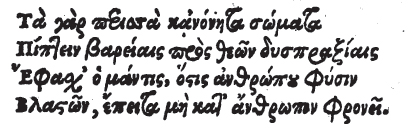 Τὰ γὰρ περισσὰ κἀνόνητα σώματα
Πίπτειν βαρείαις πρὸς θεῶν δυσπραξίαις
Ἔφασχ' ὁ μάντις, ὅστις ἀνθρώπου φύσιν
Βλαστῶν, ἔπειτα μὴ κατ' ἄνθρωπον φρονεῖ.